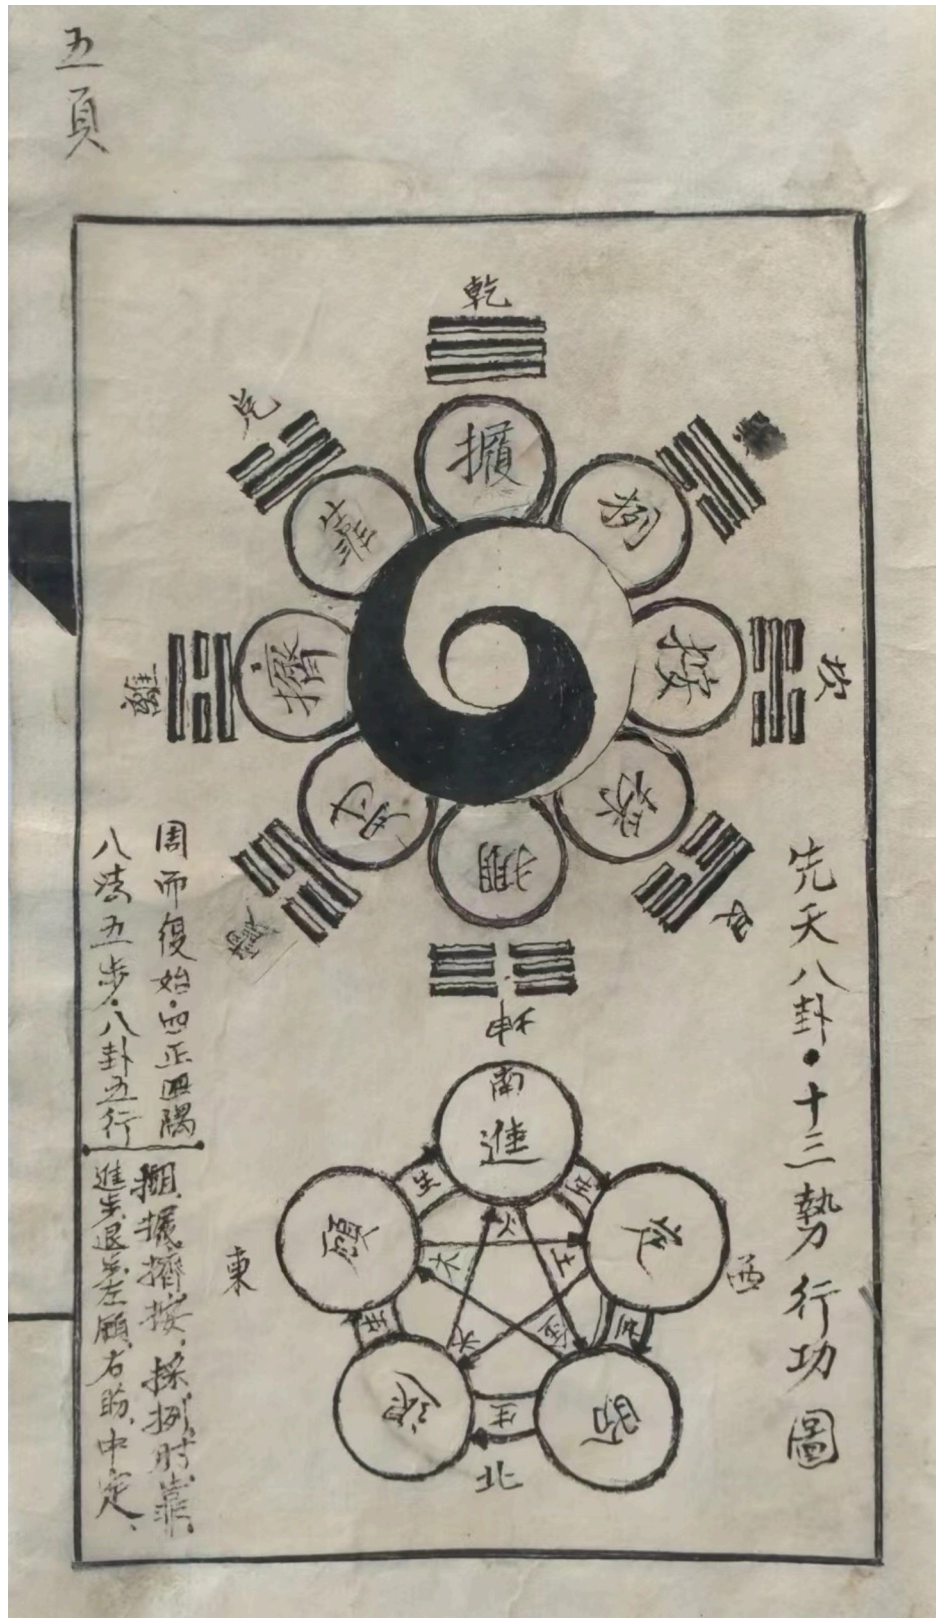 五頁
先天八卦·十三勢行功圖
乾
兌
離
坎
坤
攦
挒
按
採
掤
肘
擠
靠
南
進
東
顧
西
定
北
退
盼
生
生
生
生
生
火
土
金
水
木
周而復始·四正四隅
八法五步·八卦五行
掤、攦、擠、按、採、挒、肘、靠、
進步、退步、左顧、右盼、中定、